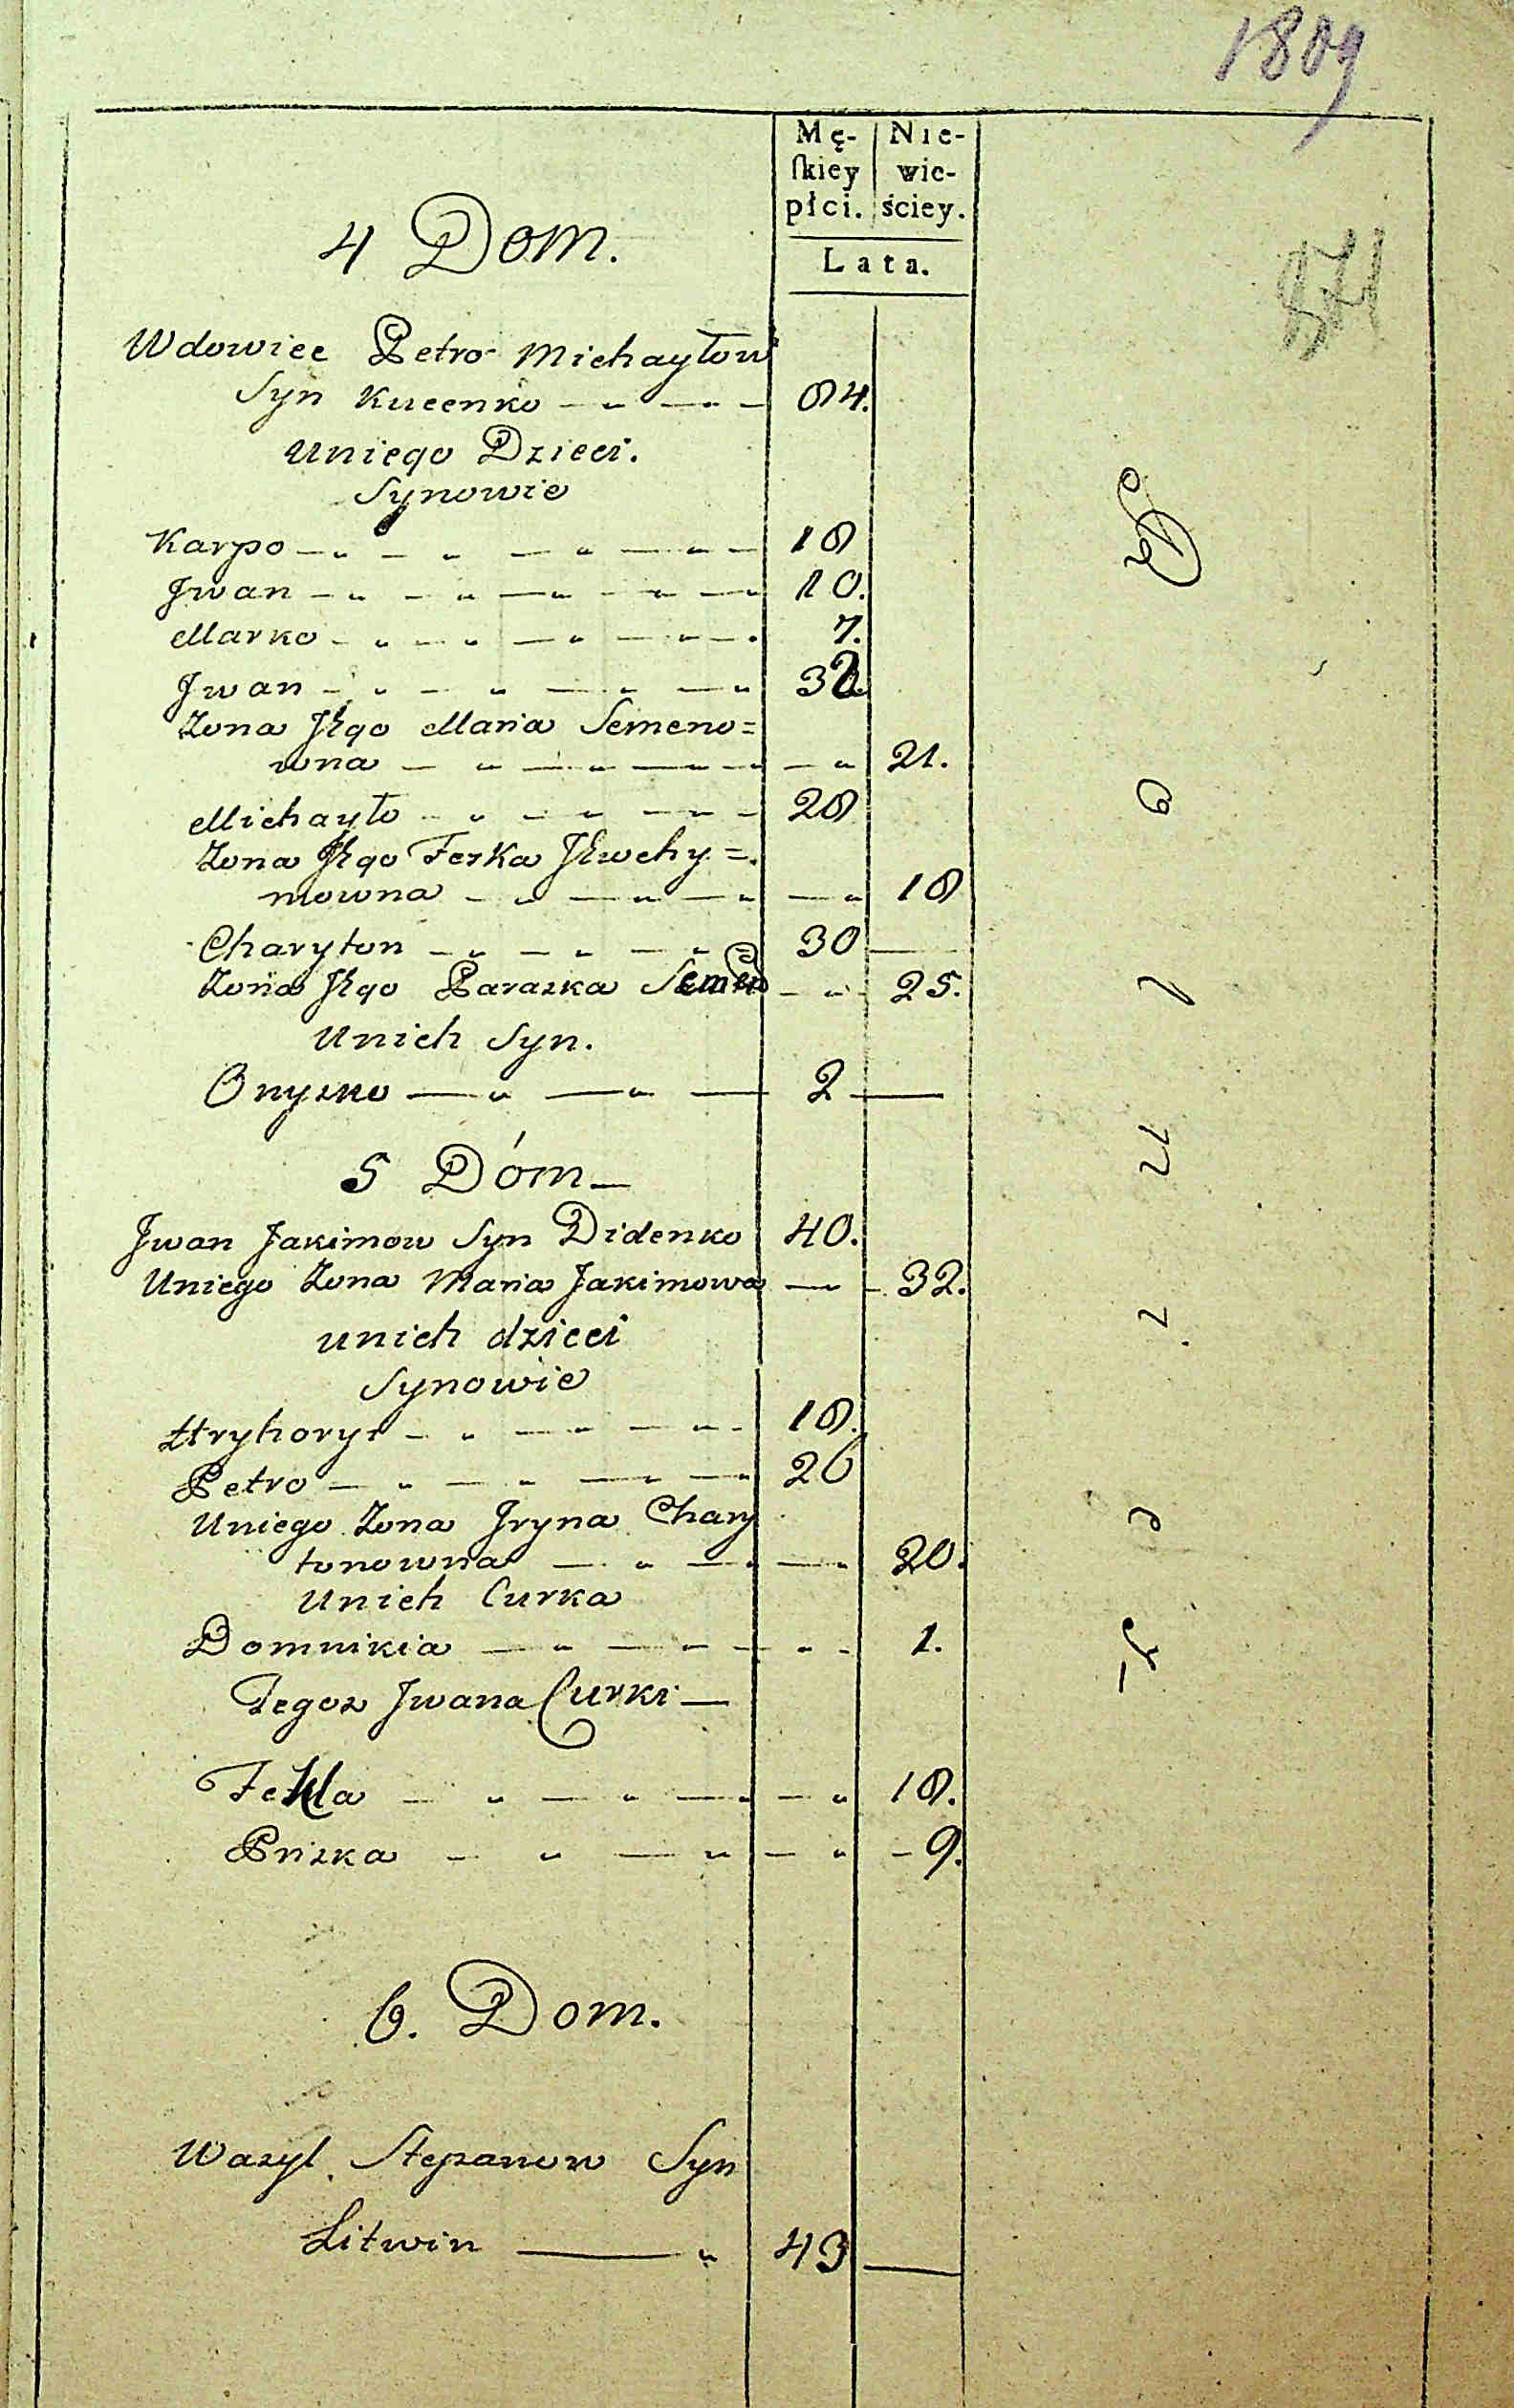 1809
Mę- Nie-
ſkiey wie-
płci. ściey.
Lata.
4 Dom.
Wdowiec Petro Michayłow
Syn Kucenko 84.
Uniego Dzieci.
Synowie
Karpo 18
Jwan 10.
Marko 7.
Jwan 32.
Zona Jego Maria Semeno=
wna 21.
Michayło 28
Zona Jego Feska
mowna 18
Charyton 30
Zona Jego Paraska Semen 25.
Unich Syn.
Onysko 2
5 Dóm
Jwan Jakimow Syn Didenko 40.
Uniego Zona Maria Jakimowa 32.
unich dzieci
Synowie
Hryhory 18.
Petro 26
Uniego Zona Jryna Chary
tonowna 20.
Unich Curka
Domnikia 1.
Tegoz Jwana Curki
Tekla 18.
Priska 9.
6. Dom.
Wasyl Stepanow Syn
Litwin 43